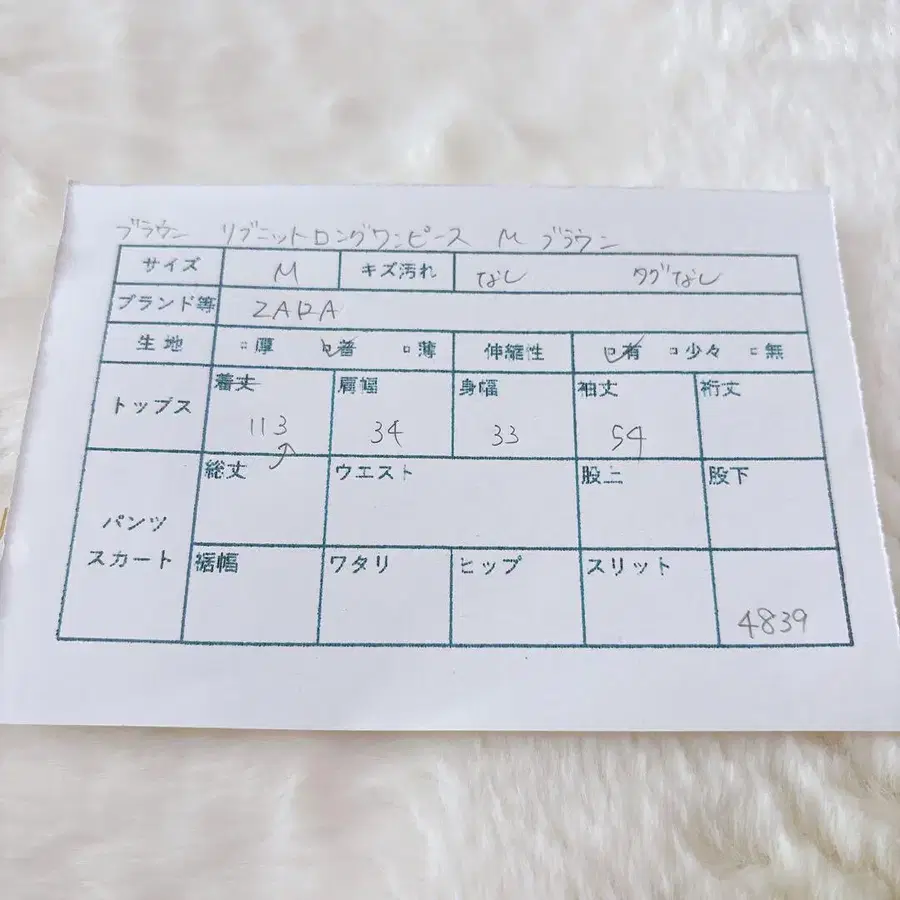 ブラウン リブニットロングワンピース M ブラウン
サイズ M キズ汚れ なし タグなし
ブランド等 ZARA
生地 □厚 □普 □薄 伸縮性 □有 □少々 □無
トップス 着丈 肩幅 身幅 袖丈 裄丈
113 34 33 54
総丈 ウエスト 股上 股下
パンツ
スカート 裾幅 ワタリ ヒップ スリット
4839